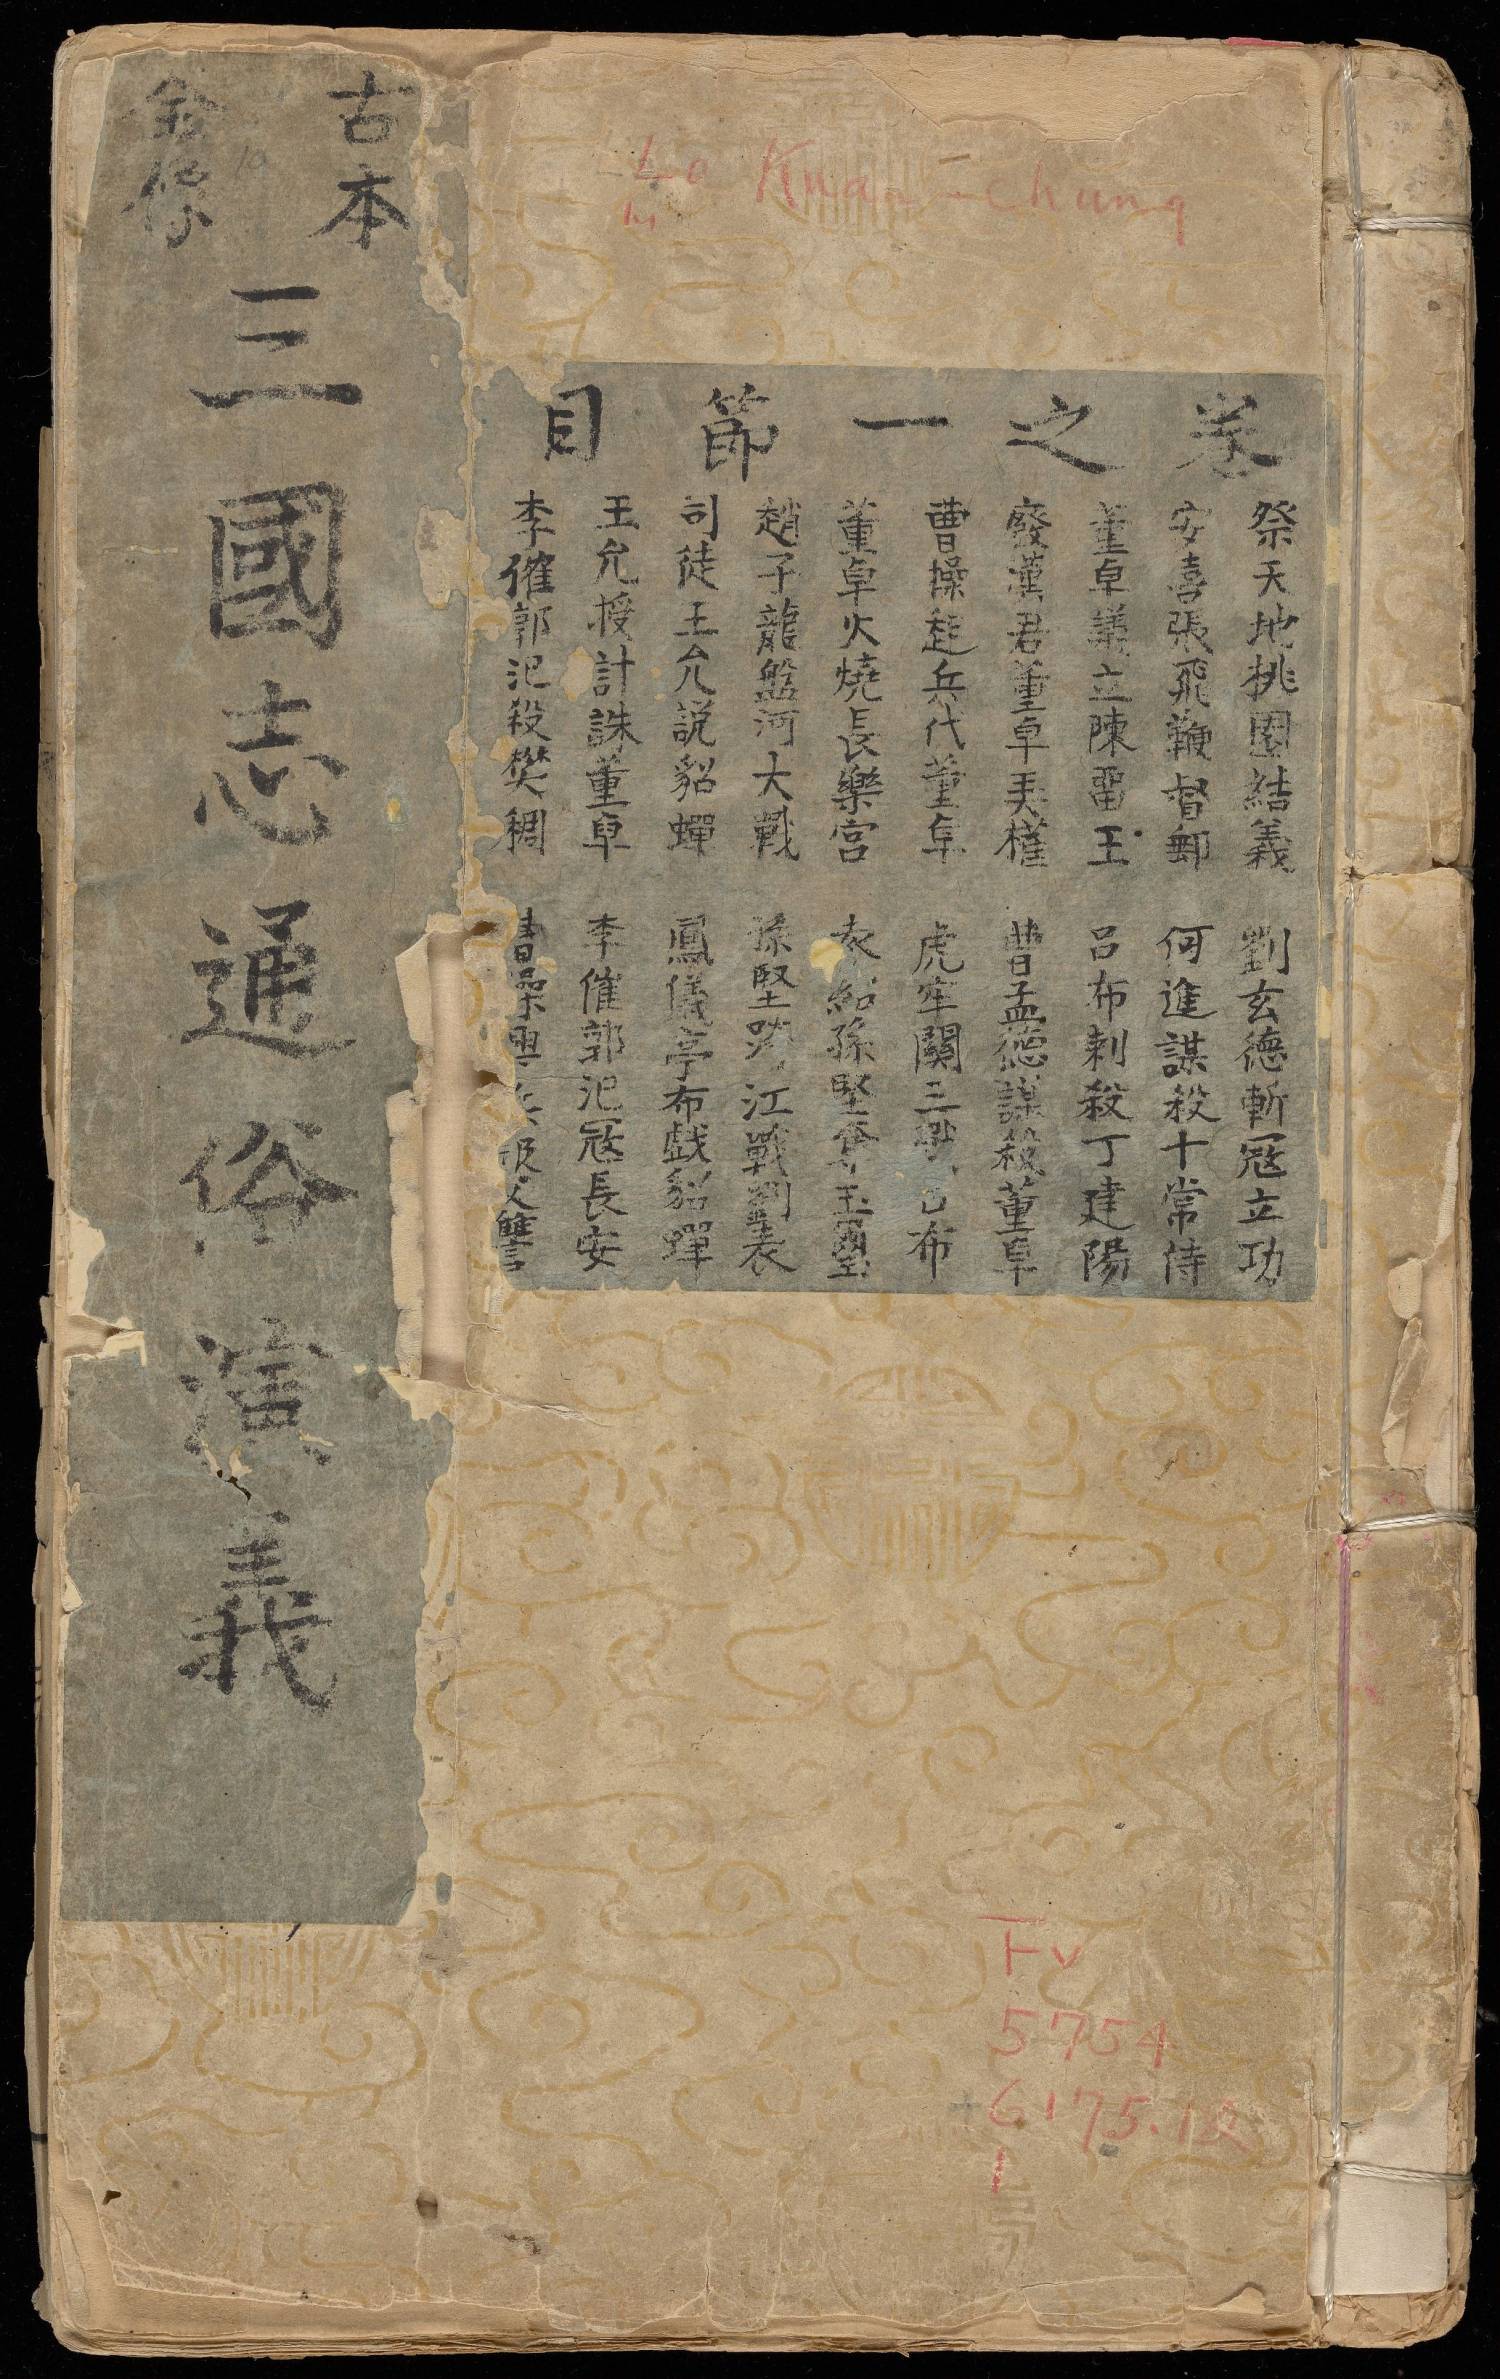 古本
全像
三國志通俗演義
卷之一節目
祭天地桃園結義
劉玄德斬寇立功
安喜張飛鞭督郵
何進謀殺十常侍
董卓議立陳畱王
呂布刺殺丁建陽
廢漢君董卓弄權
曹孟德謀殺董卓
曹操起兵伐董卓
虎牢關三戰呂布
董卓火燒長樂宮
袁紹孫堅奪玉璽
趙子龍盤河大戰
孫堅跨江戰劉表
司徒王允説貂蟬
鳳儀亭布戲貂蟬
王允授計誅董卓
李傕郭汜寇長安
李傕郭汜殺樊稠
曹操興兵報父讐
Lo Kuan-chung
Fv
5754
6175.1
1